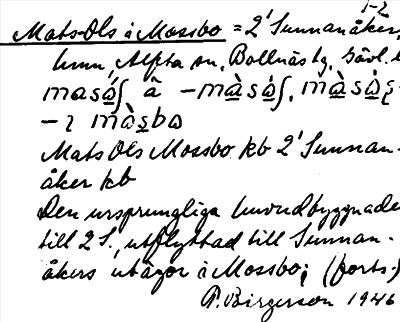 1-2
Mats-Ols i Mossbo = 2' Sunnanåker,
hmn, Alfta sn, Bollnäs tg, Gävl. l
Mats Ols Mossbo kb 2' Sunnan-
åker kb
Den ursprungliga huvudbyggnaden
till 2 S., utflyttad till Sunnan-
åkers utägor i Mossbo; (forts.)
P. Birgerson 1946